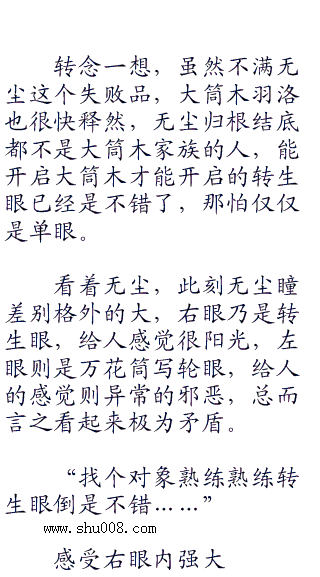 转念一想，虽然不满无
尘这个失败品，大筒木羽洛
也很快释然，无尘归根结底
都不是大筒木家族的人，能
开启大筒木才能开启的转生
眼已经是不错了，那怕仅仅
是单眼。
看着无尘，此刻无尘瞳
差别格外的大，右眼乃是转
生眼，给人感觉很阳光，左
眼则是万花筒写轮眼，给人
的感觉则异常的邪恶，总而
言之看起来极为矛盾。
“找个对象熟练熟练转
生眼倒是不错……”
www.shu008.com
感受右眼内强大